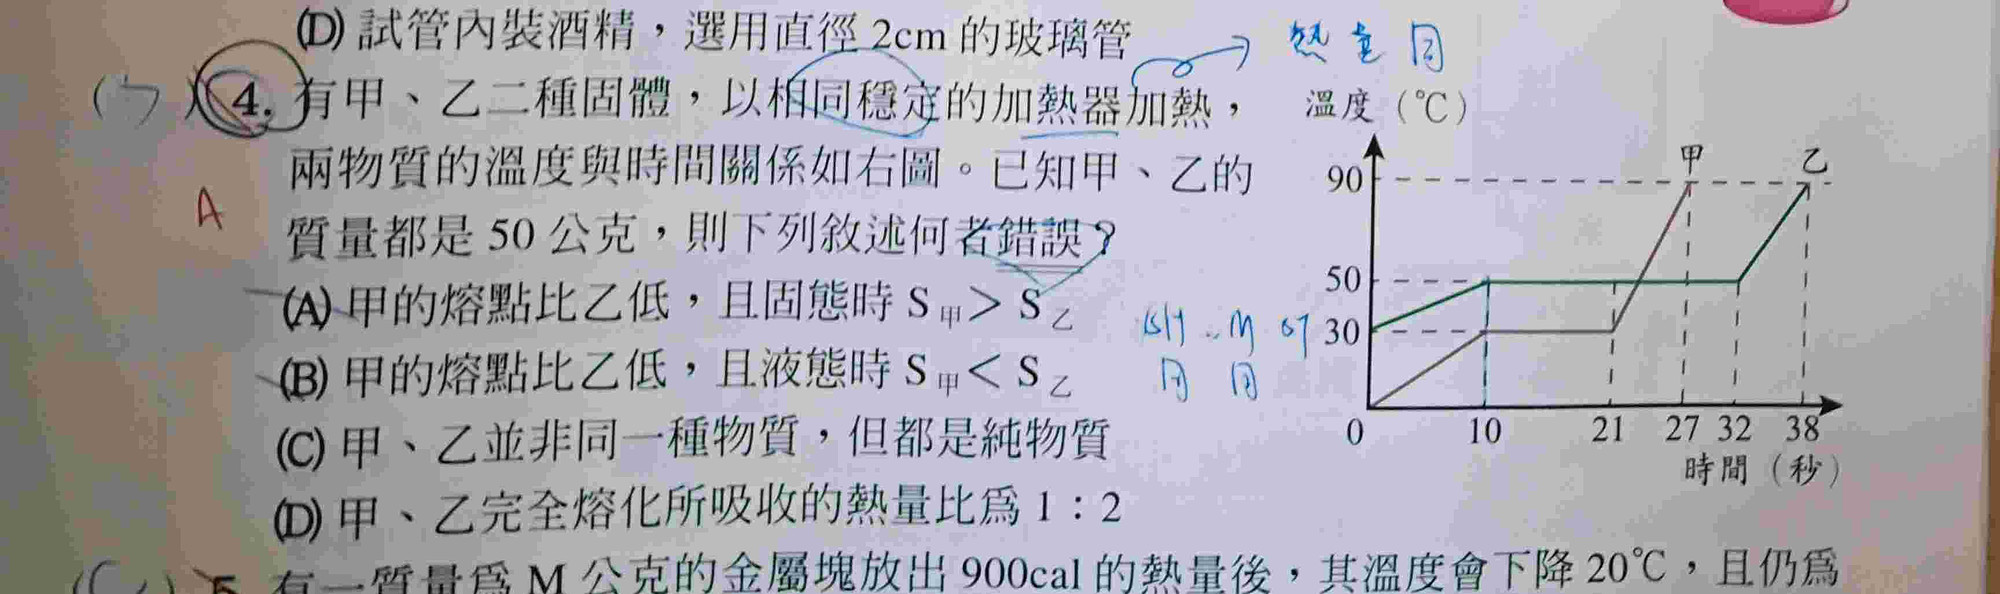 (D) 試管內裝酒精，選用直徑 2cm 的玻璃管
熱量同
(ㄅ) 4. 有甲、乙二種固體，以相同穩定的加熱器加熱，
兩物質的溫度與時間關係如右圖。已知甲、乙的
A
質量都是 50 公克，則下列敘述何者錯誤？
(A) 甲的熔點比乙低，且固態時 S甲＞S乙
(B) 甲的熔點比乙低，且液態時 S甲＜S乙
(C) 甲、乙並非同一種物質，但都是純物質
(D) 甲、乙完全熔化所吸收的熱量比為 1：2
同 同
溫度（℃）
甲 乙
90
50
30
0 10 21 27 32 38
時間（秒）
5. 有一質量為 M 公克的金屬塊放出 900cal 的熱量後，其溫度會下降 20℃，且仍為